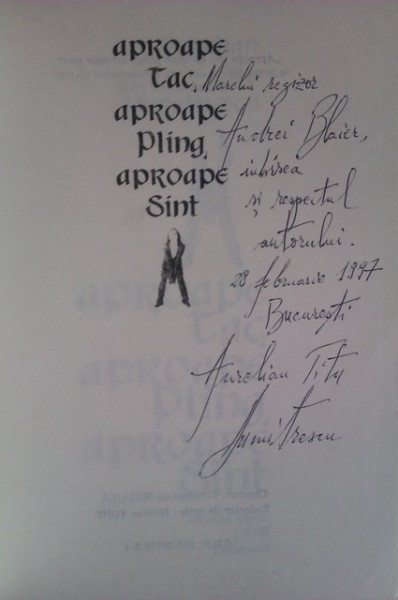 aproape
tac,
aproape
pling,
aproape
sint
Marelui regizor
Andrei Blaier,
iubirea
și respectul
autorului.
28 februarie 1997
București
Aurelian Titu
Dumitrescu